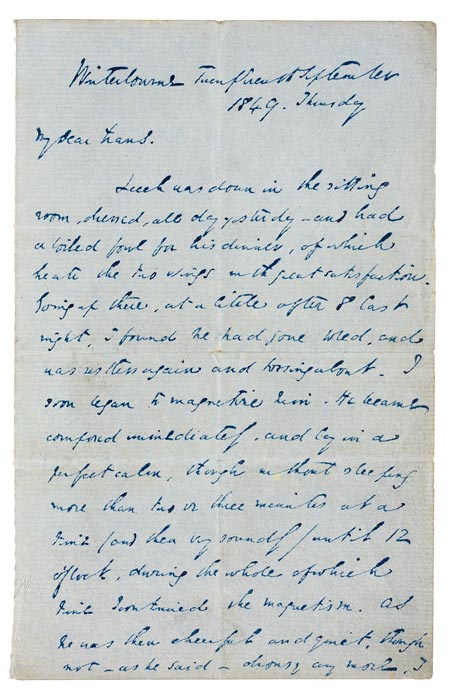 Winterbourne Twentieth September
1849. Thursday
My Dear Evans.
Leech was down in the sitting
room, dressed, all day yesterday – and had
a boiled fowl for his dinner, of which
he ate the two wings with great satisfaction.
Going up there, at a little after 8 last
night, I found he had gone to bed, and
was restless again and tossing about. I
soon began to magnetize him. He became
composed immediately, and lay in a
perfect calm, though without sleeping
more than two or three minutes at a
time (and then very soundly) until 12
o'Clock, during the whole of which
time I continued the magnetism. As
he was then cheerful and quiet, though
not – as he said – drowsy any more, I